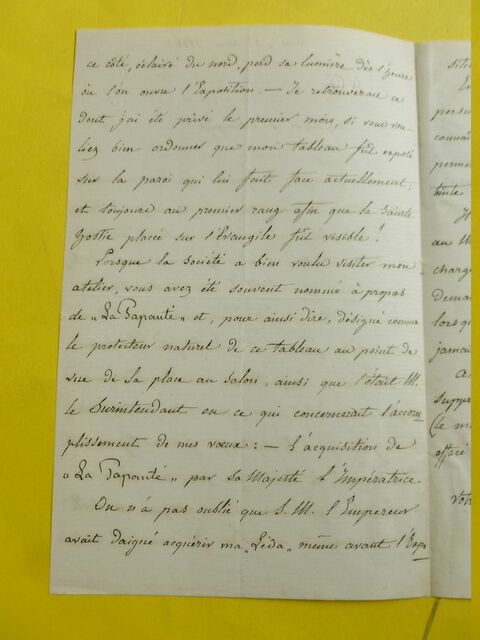 ce côté, éclairé du nord, perd sa lumière dès l'heure
où l'on ouvre l'Exposition. — Je retrouverais ce
dont j'ai été privé le premier mois, si vous vou-
liez bien ordonner que mon tableau fût exposé
sur la paroi qui lui fait face actuellement,
et toujours au premier rang afin que la Sainte
Hostie placée sur l'Evangile fût visible!
Lorsque la Société a bien voulu visiter mon
atelier, vous avez été souvent nommé à propos
de « La Papauté » et, pour ainsi dire, désigné comme
le protecteur naturel de ce tableau au point de
vue de sa place au salon, ainsi que l'était M.
le Surintendant en ce qui concernerait l'accom
plissement de mes vœux : — l'acquisition de
« La Papauté » par sa Majesté l'Impératrice.
On n'a pas oublié que S. M. l'Empereur
avait daigné acquérir ma « Léda » même avant l'Expo
au M
charg
dema
lorsqu
jamai
(le m
effacé